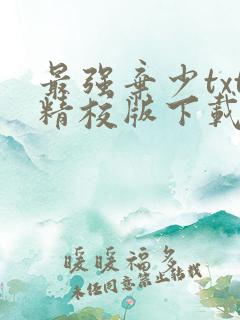 最强弃少txt
精校版下载
暖暖福多
未经同意禁止转载